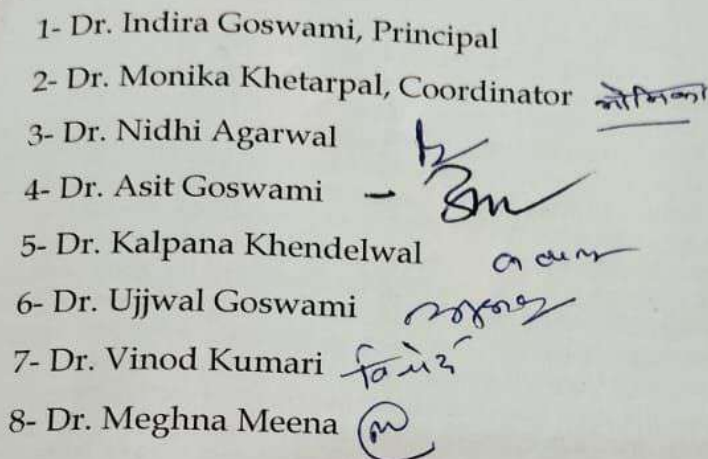 1- Dr. Indira Goswami, Principal
2- Dr. Monika Khetarpal, Coordinator मोनिका
3- Dr. Nidhi Agarwal
4- Dr. Asit Goswami –
5- Dr. Kalpana Khendelwal
6- Dr. Ujjwal Goswami
7- Dr. Vinod Kumari
8- Dr. Meghna Meena